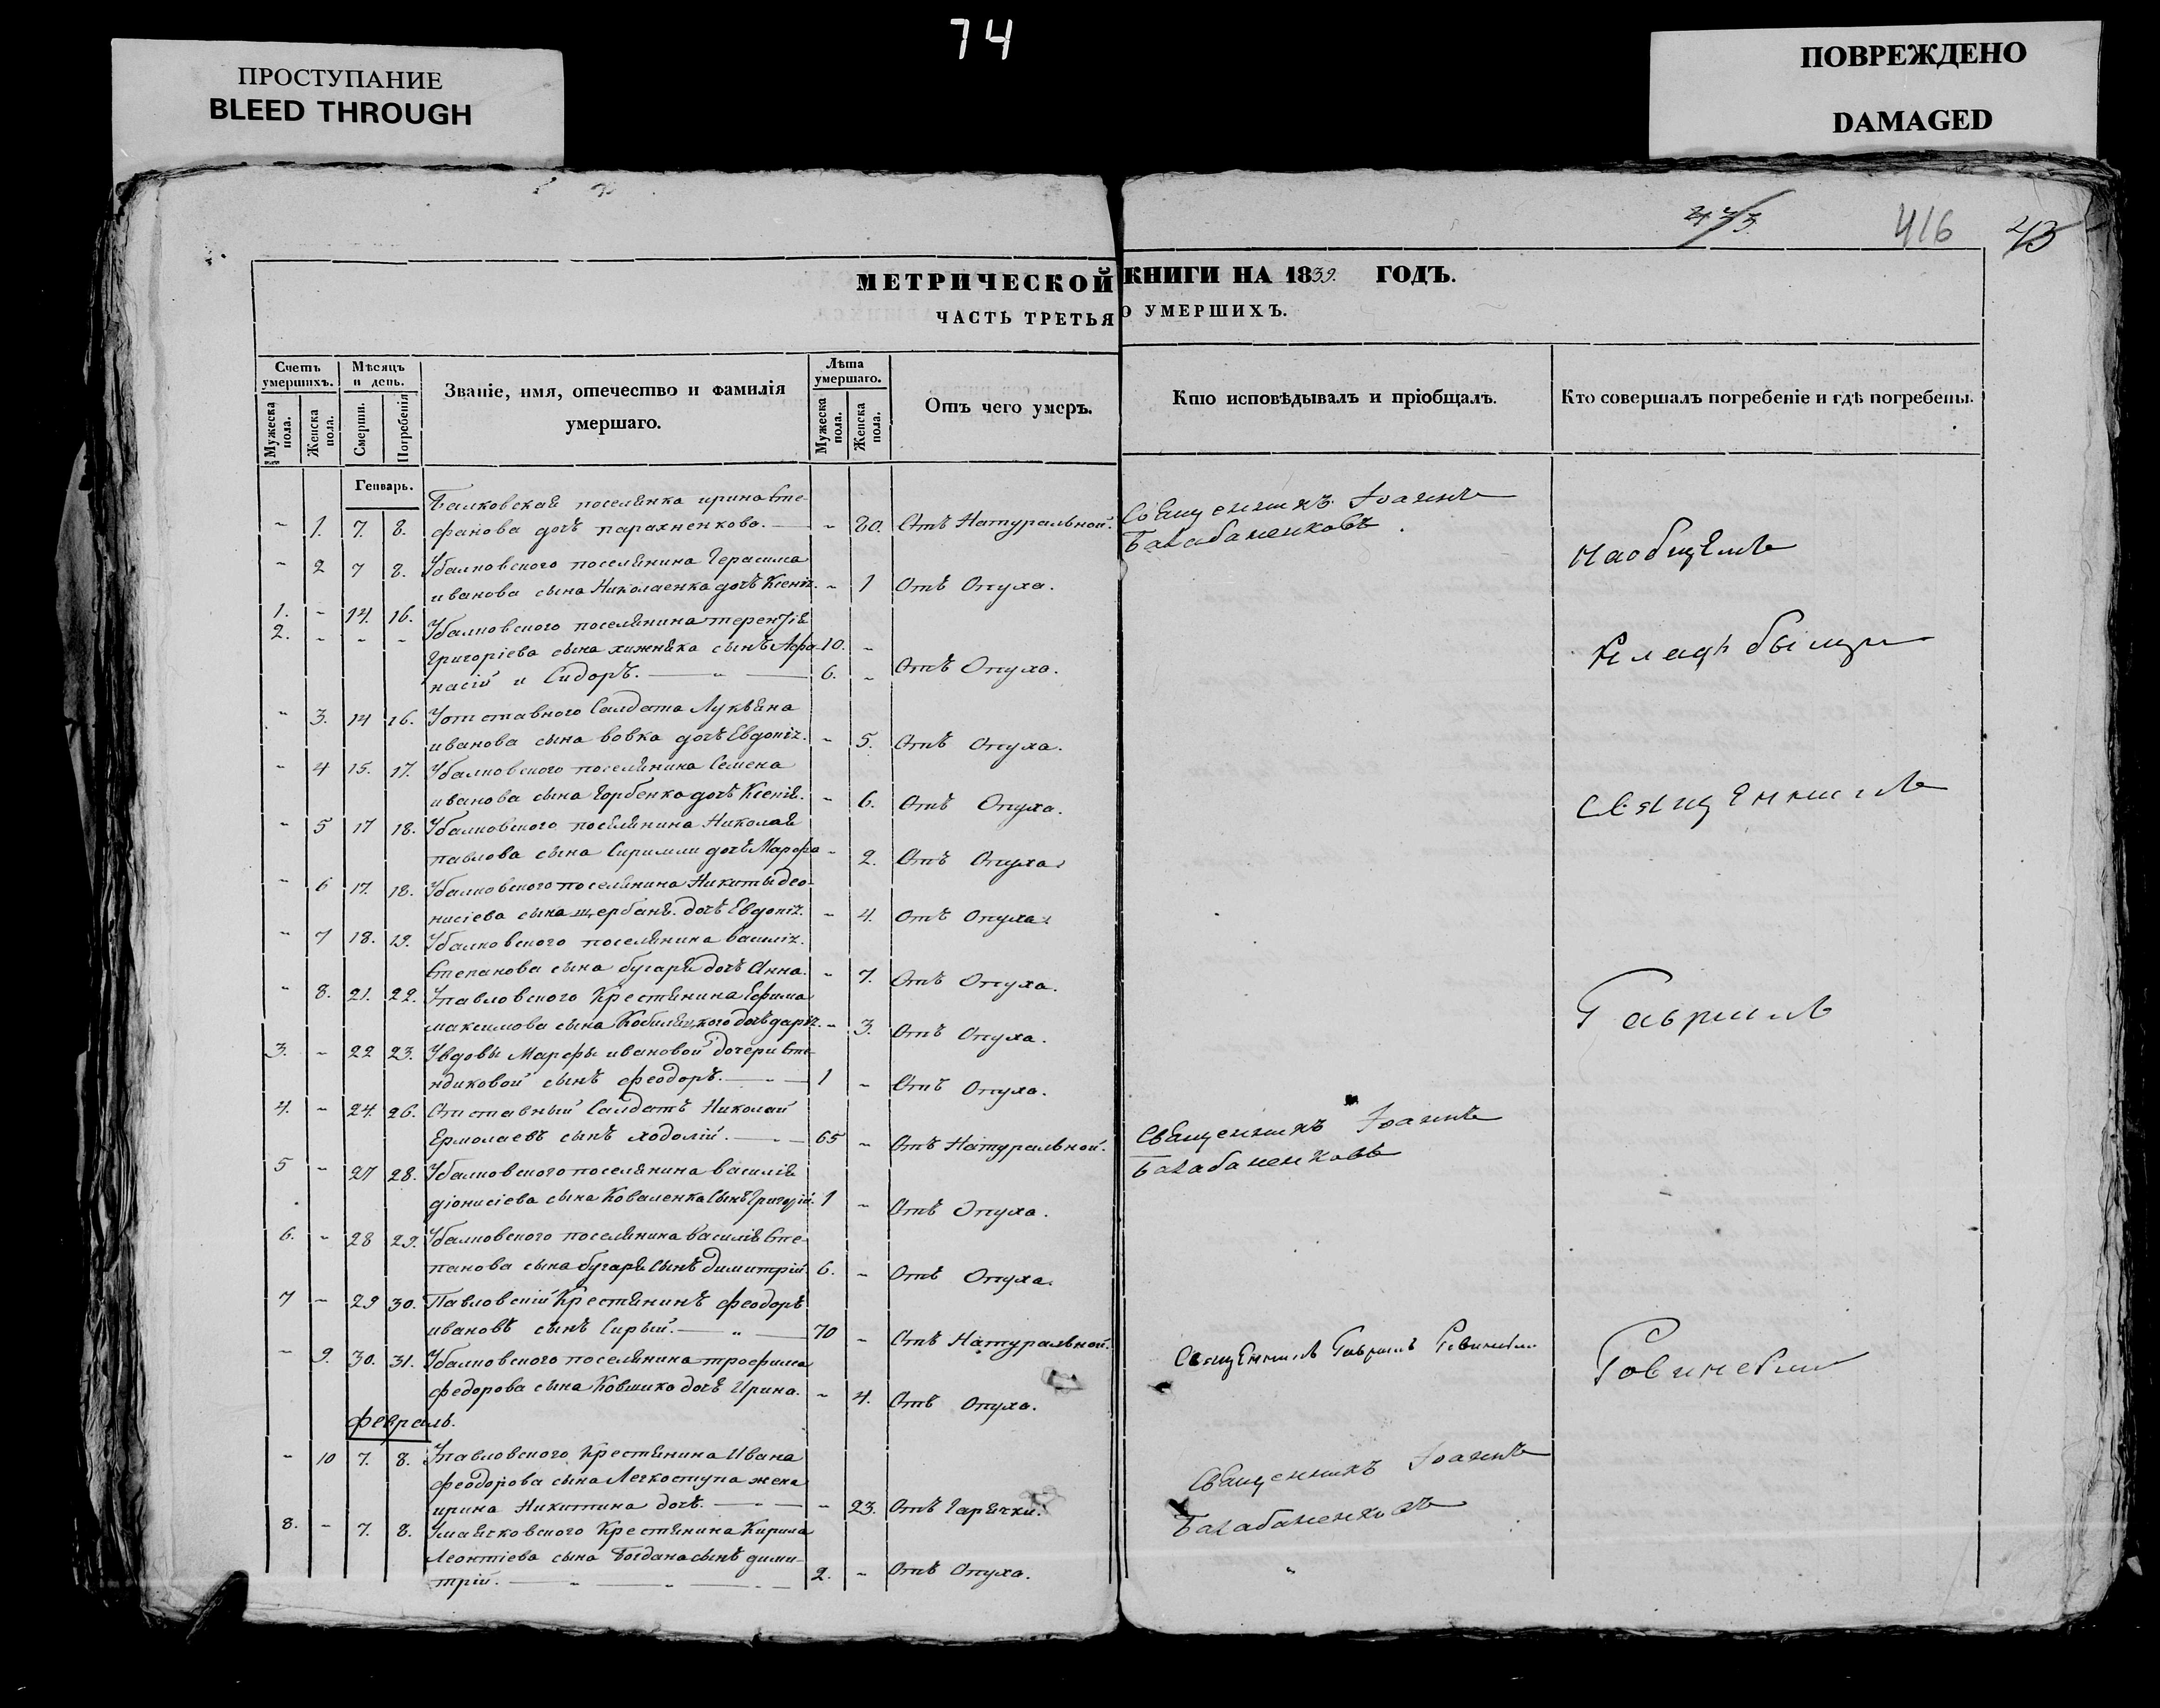 74
ПРОСТУПАНИЕ
BLEED THROUGH
ПОВРЕЖДЕНО
DAMAGED
416
43
МЕТРИЧЕСКОЙ КНИГИ НА 1839. ГОДЪ.
ЧАСТЬ ТРЕТЬЯ О УМЕРШИХЪ.
Счетъ умершихъ.
Мѣсяцъ и день.
Званіе, имя, отечество и фамилія умершаго.
Лѣта умершаго.
Отъ чего умеръ.
Кто исповѣдывалъ и пріобщалъ.
Кто совершалъ погребеніе и гдѣ погребены.
Мужеска пола.
Женска пола.
Смерти.
Погребенія
Мужеска пола.
Женска пола.
Генварь.
Балковская поселянка ирина Сте-
- 1. 7. 8. фанова дочь парахненкова. - 80. Отъ Натуральной. Священникъ Іоаннъ
Балабаненковъ.
- 2 7 8. Убалковского поселянина Герасима
иванова сына Николаенка дочь Ксенія. - 1 Отъ Опуха.
на общемъ
1. - 14. 16. Убалковского поселянина терентія
2. - - - Григоріева сына хижняка сынъ Афа- 10. -
насій и Сидоръ. 6. - Отъ Опуха.
кладбыщи
- 3. 14 16. Уотставного Салдата Лукьяна
иванова сына вовка дочь Евдокія. - 5. Отъ Опуха.
- 4 15. 17. Убалковского поселянина Семена
иванова сына Горбенка дочь Ксенія. - 6. Отъ Опуха.
Священникъ
- 5 17 18. Убалковского поселянина Николая
павлова сына дочь Марфа - 2. Отъ Опуха.
- 6 17. 18. Убалковского поселянина Никиты део-
нисіева сына щербаня. дочь Евдокія. - 4. Отъ Опуха.
- 7 18. 19. Убалковского поселянина василія.
Степанова сына бугаря дочь Анна. - 7. Отъ Опуха.
- 8. 21. 22. Упавловского Крестянина Ефима
максимова сына дочь дарія. - 3. Отъ Опуха.
Гавриилъ
3. - 22 23. Увдовы Марфы ивановой дочери Сте-
ндиковой сынъ феодоръ. 1 - Отъ Опуха.
4. - 24. 26. Отставный Салдатъ Николай
Ермолаевъ сынъ ходолій. 65 - Отъ Натуральной. Священникъ Іоаннъ
Балабаненковъ
5 - 27 28. Убалковского поселянина василія
діонисіева сына Коваленка Сынъ Григорій. 1 - Отъ Опуха.
6. - 28 29. Убалковского поселянина василія Сте-
панова сына бугаря Сынъ димитрій. 6. - Отъ Опуха.
7 - 29 30. Павловскій Крестянинъ феодоръ
ивановъ сынъ Сирый. 70 - Отъ Натуральной.
Священникъ Гавриилъ
- 9. 30. 31. Убалковского поселянина трофима
федорова сына Ковшико дочь Ирина. - 4. Отъ Опуха.
февраль.
- 10 7. 8. Упавловского Крестянина Ивана
феодорова сына Легкоступа жена
ирина Никитина дочь. - 23. Отъ Гарячки.
Священникъ Іоаннъ
Балабаненковъ
8. - 7. 8. Умаячковского Крестянина Кирила
Леонтіева сына Богдана сынъ дими-
трій. 2. - Отъ Опуха.